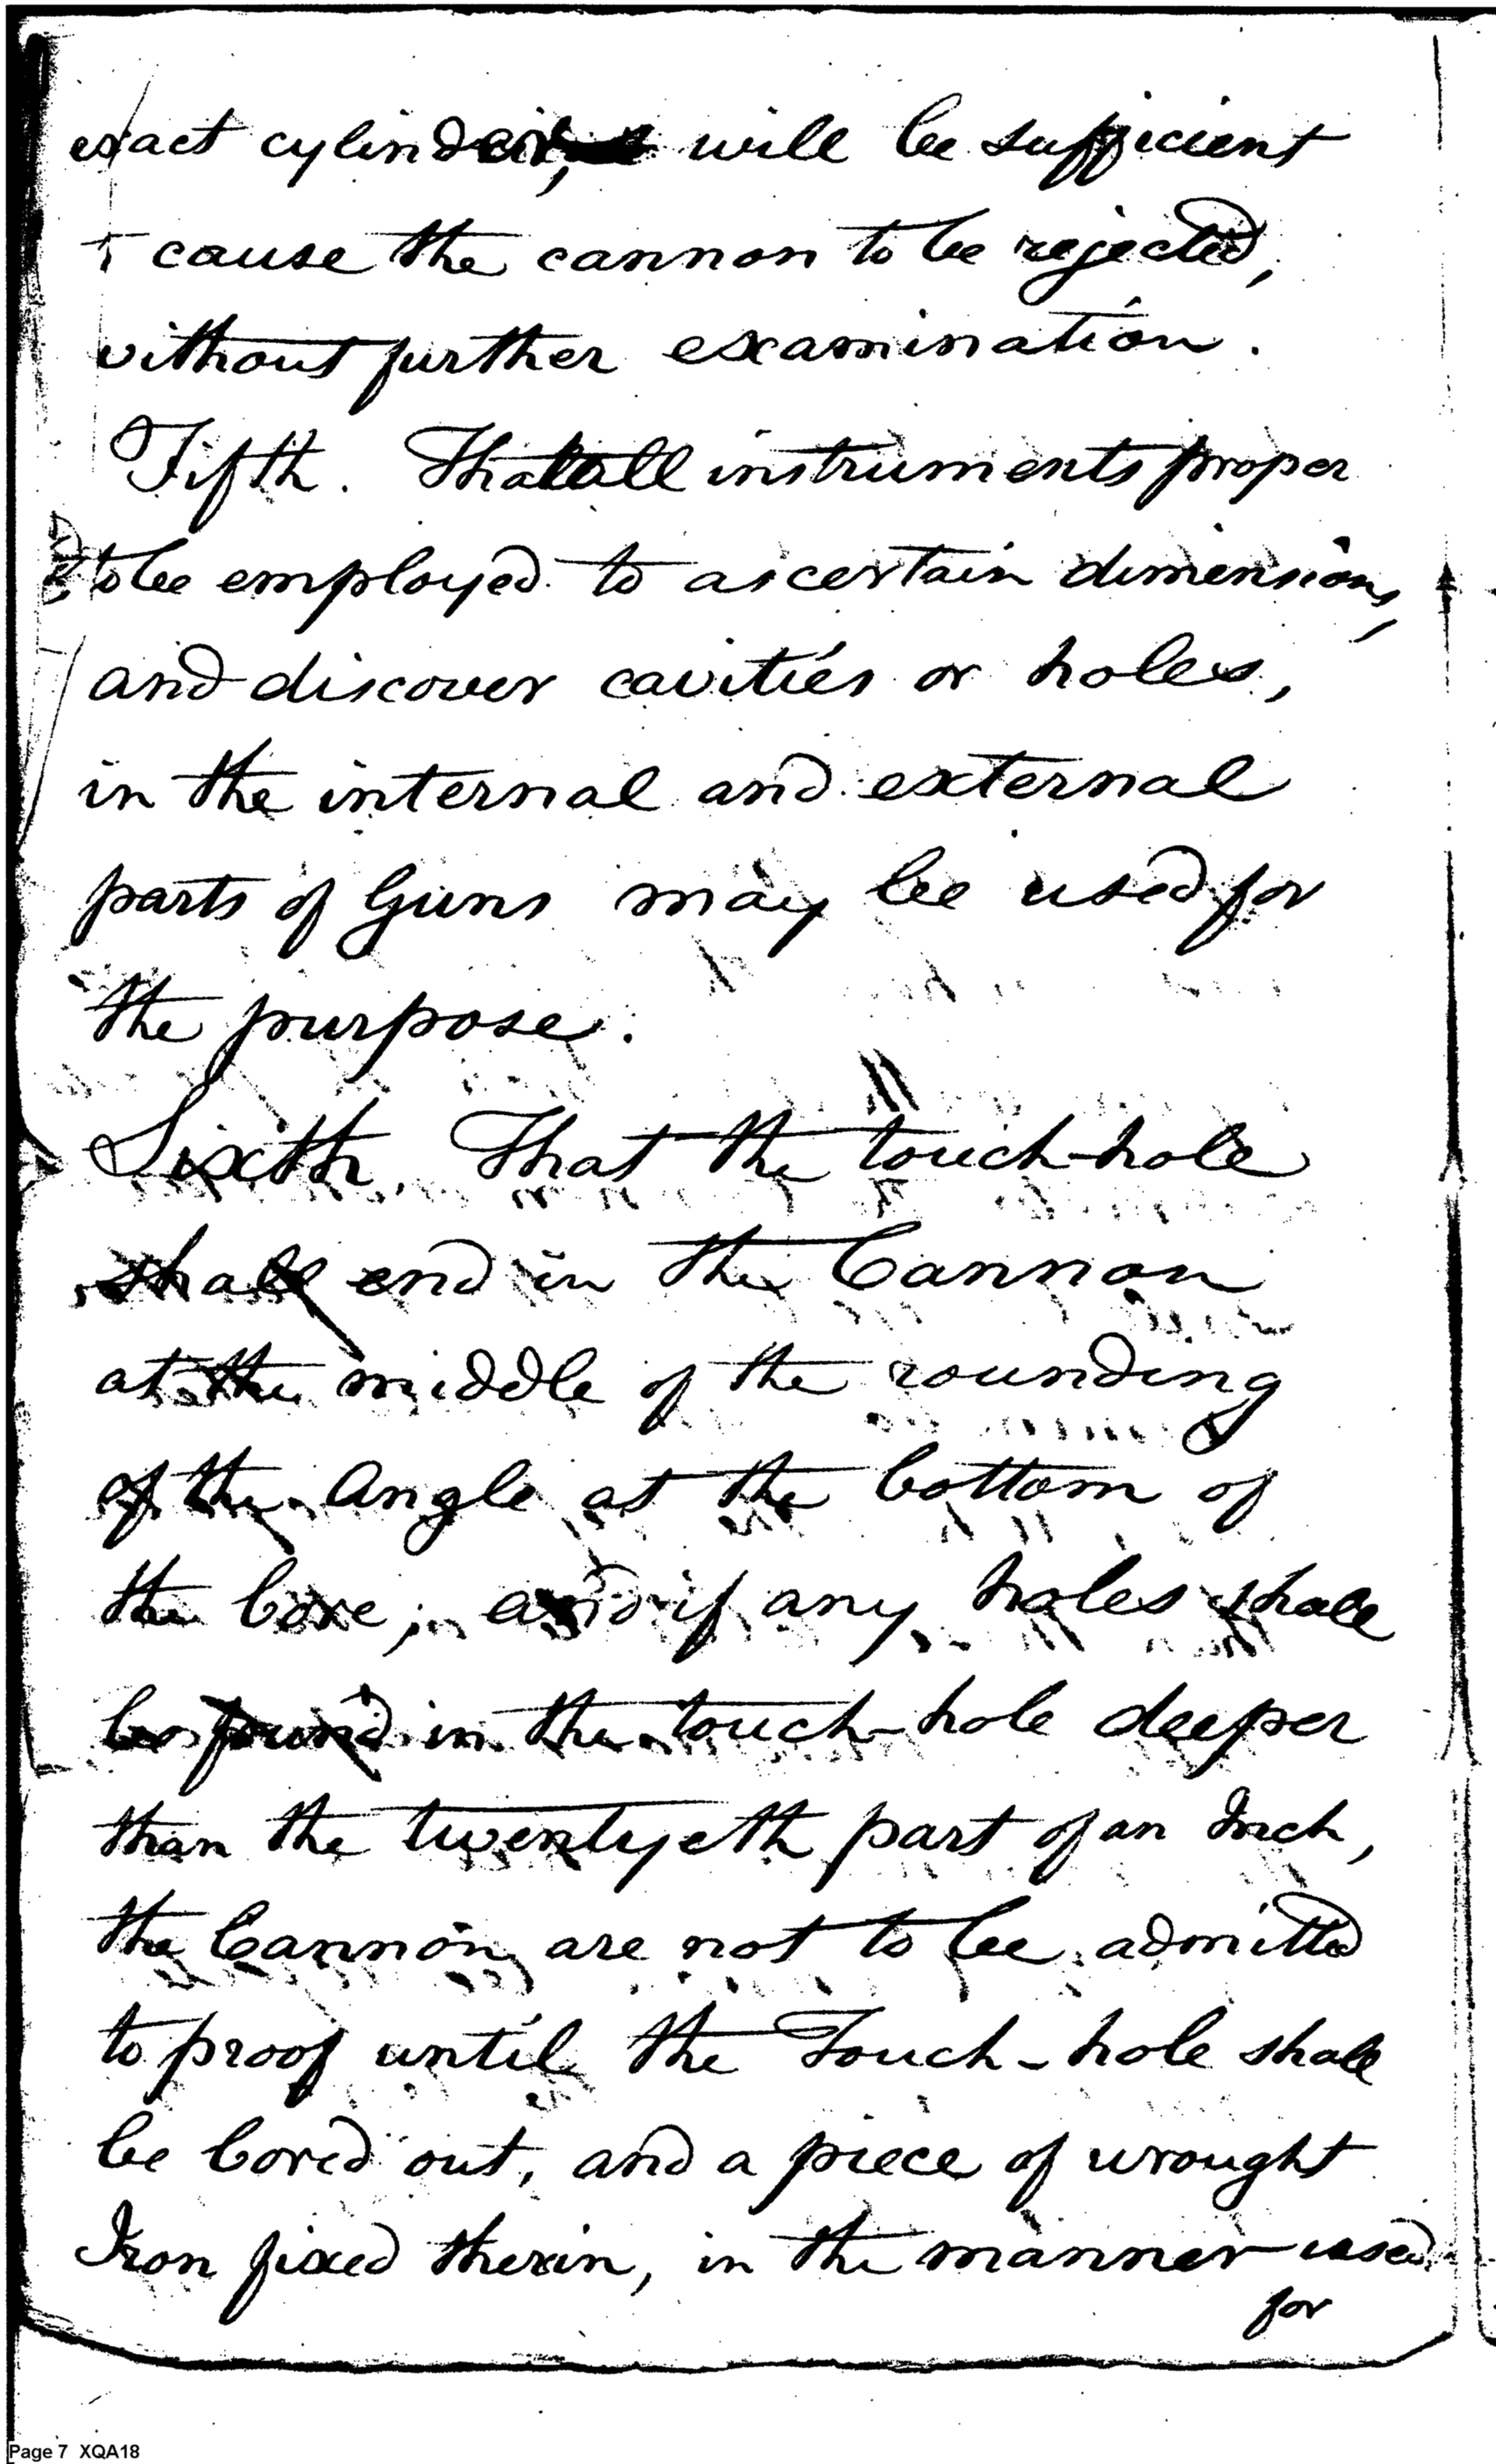 exact cylinder, will be sufficient
cause the cannon to be rejected,
without further examination.
Fifth. That all instruments proper
to be employed to ascertain dimensions,
and discover cavities or holes,
in the internal and external
parts of Guns may be used for
the purpose.
Sixth. That the touch-hole
shall end in the Cannon
at the middle of the rounding
of the Angle at the bottom of
the bore; and if any holes shall
be found in the touch-hole deeper
than the twentyeth part of an Inch,
the Cannon are not to be admitted
to proof until the Touch-hole shall
be bored out, and a piece of wrought
Iron fixed therin, in the manner used
for
Page 7 XQA18